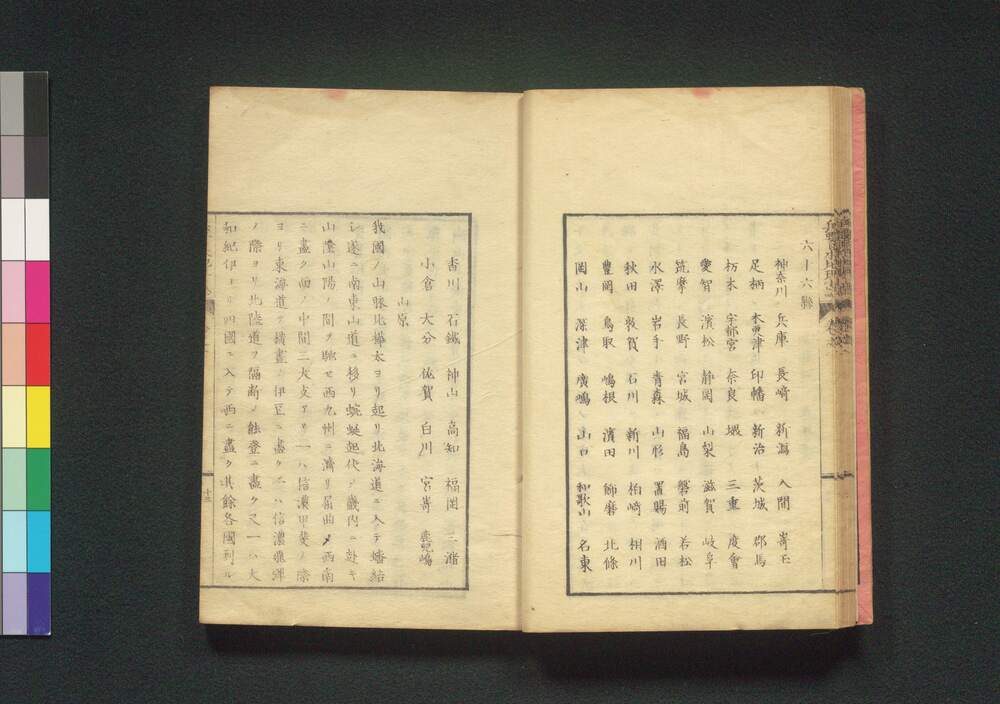 六十六縣
神奈川 兵庫 長崎 新瀉 入間 嵜玉
足柄 木更津 印幡 新治 茨城 郡馬
栃木 宇都宮 奈良 堺 三重 度會
愛智 濱松 静岡 山梨 滋賀 岐阜
筑摩 長野 宮城 福島 磐前 若松
水澤 岩手 青森 山形 置賜 酒田
秋田 敦賀 石川 新川 柏崎 相川
豊岡 鳥取 嶋根 濱田 飾磨 北條
岡山 深津 廣嶋 山口 和歌山 名東
香川 石鐵 神山 高知 福岡 三潴
小倉 大分 佐賀 白川 宮嵜 鹿児嶋
山原
我國ノ山脉北樺太ヨリ起リ北海道ニ入テ蟠結
シ遂ニ南東山道ニ移リ蜿蜒起伏シ畿内ニ赴キ
山陰山陽ノ間ヲ馳セ西九州ニ濟リ屈曲メ西南
ニ盡ク而ノ中間二大支アリ一ハ信濃甲斐ノ際
ヨリ東海道ヲ横畫シ伊豆ニ盡ク一ハ信濃飛驒
ノ際ヨリ北陸道ヲ隔断メ能登ニ盡ク又一ハ大
和紀伊ヨリ四國ニ入テ西ニ盡ク其餘各國列ル
十三